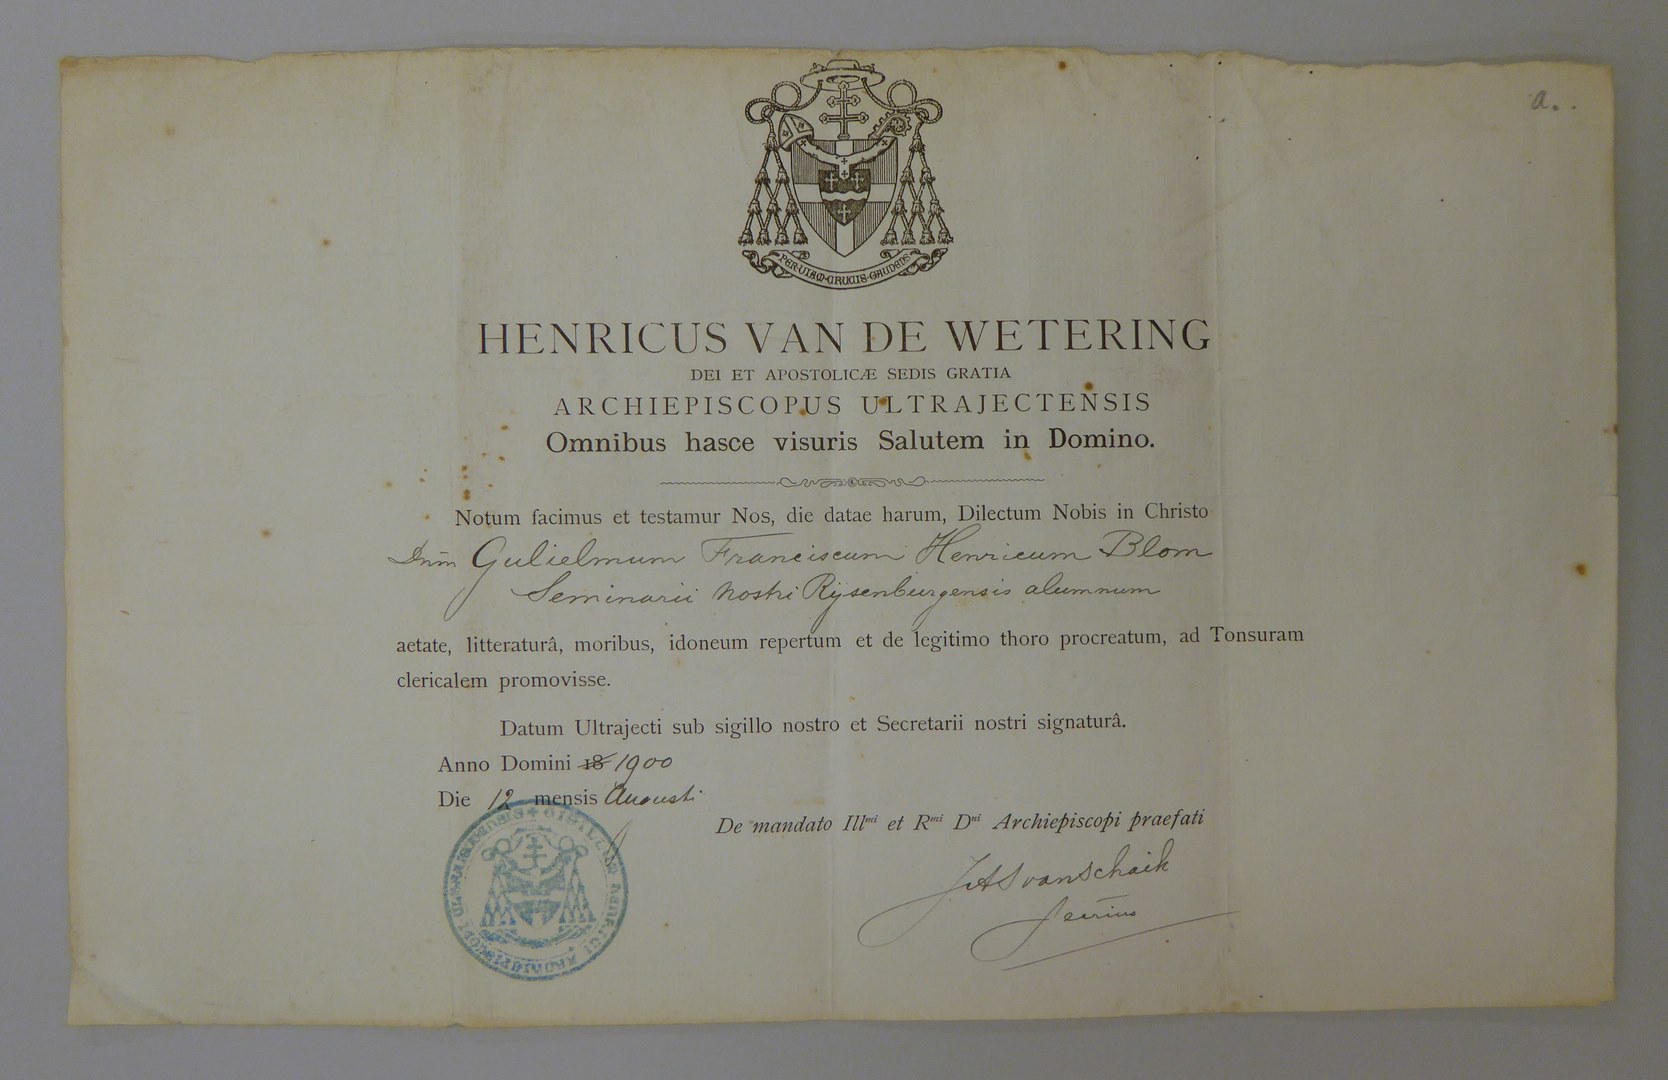 a.
PER·VIAM·CRUCIS·GAUDENS
HENRICUS VAN DE WETERING
DEI ET APOSTOLICÆ SEDIS GRATIA
ARCHIEPISCOPUS ULTRAJECTENSIS
Omnibus hasce visuris Salutem in Domino.
Notum facimus et testamur Nos, die datae harum, Dilectum Nobis in Christo
Dnm Gulielmum Franciscum Henricum Blom
Seminarii nostri Rijsenburgensis alumnum
aetate, litteraturâ, moribus, idoneum repertum et de legitimo thoro procreatum, ad Tonsuram
clericalem promovisse.
Datum Ultrajecti sub sigillo nostro et Secretarii nostri signaturâ.
Anno Domini 18 1900
Die 12 mensis Augusti
De mandato Illmi et Rmi Dni Archiepiscopi praefati
J.A.S van Schaik
Secrius
SIGILLUM HENRICI ARCHIEPISCOPI